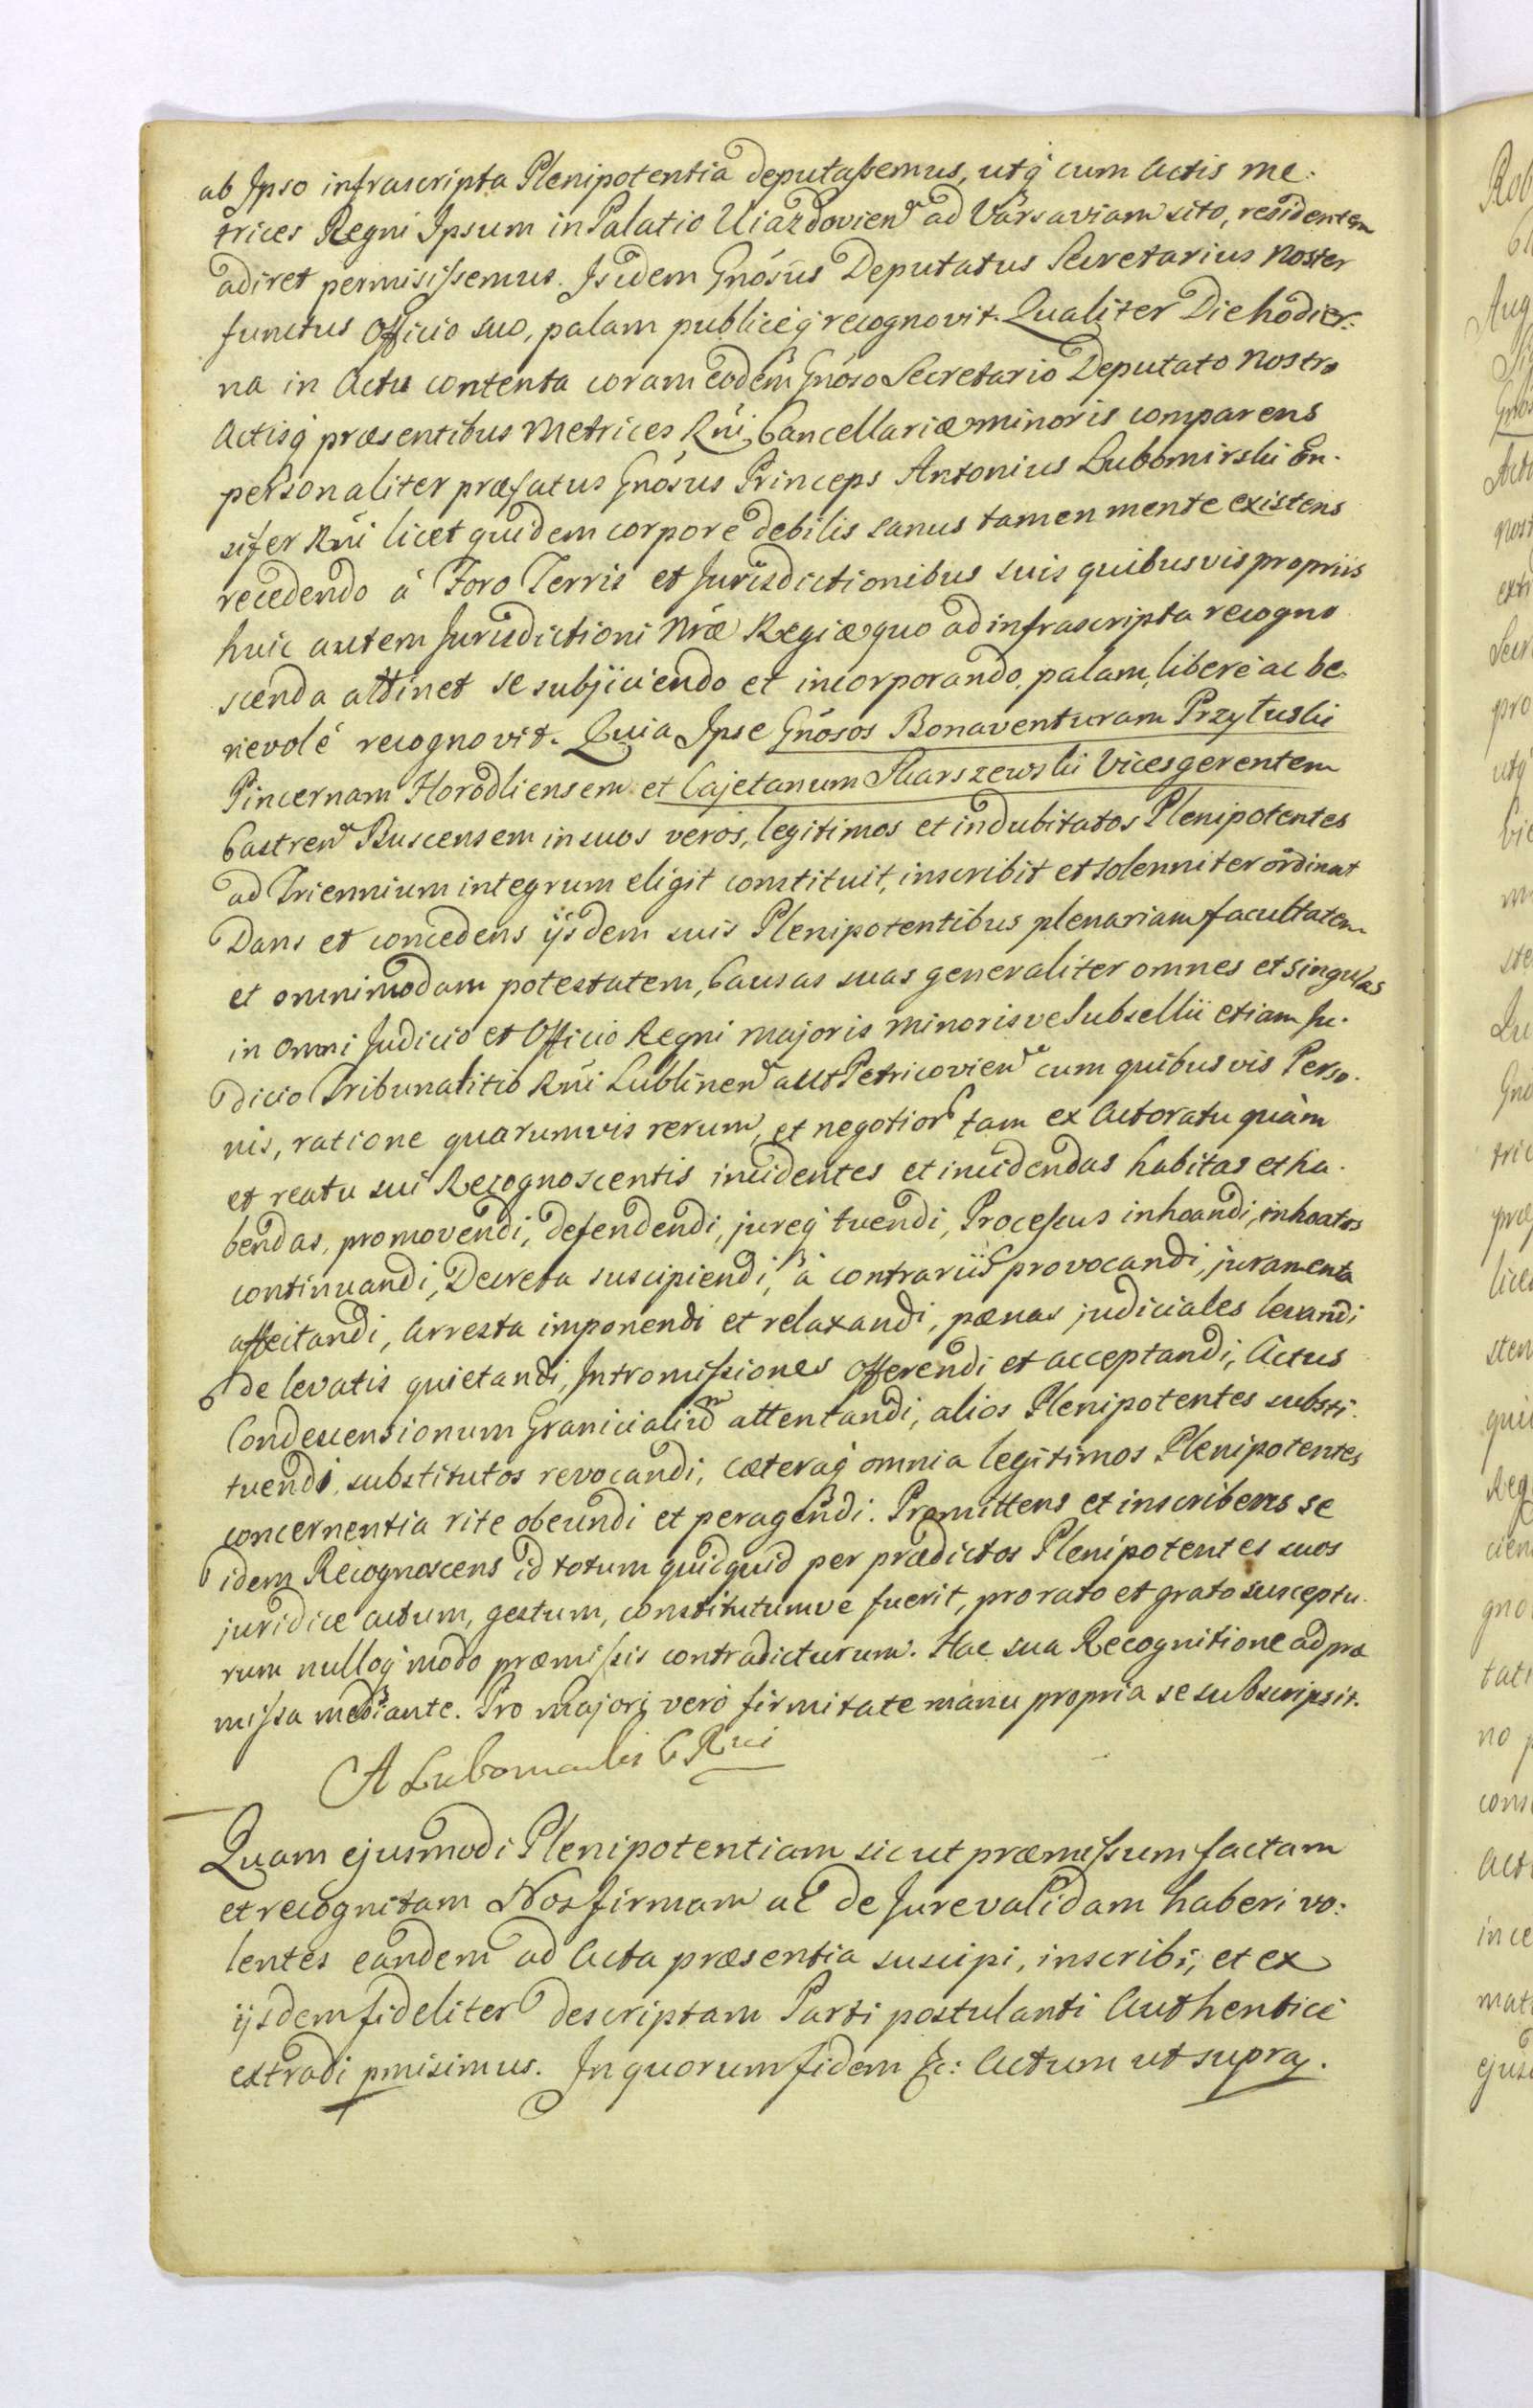 ab Ipso infrascripta Plenipotentia deputassemus, utq̃ cum Actis me:
trices Regni Ipsum in Palatio Uiazdovien ad Varsaviam sito, residentem
adiret permisissemus. Isidem Gnosus Deputatus Secretarius Noster
functus Officio suo, palam publiceq̃ recognovit. Qualiter Die hodier:
na in Actu contenta coram eodem Gnoso Secretario Deputato Nostro
Actisq̃ præsentibus Metrices Rni Cancellariæ minoris comparens
personaliter præfatus Gnosus Princeps Antonius Lubomirski En-
sifer Rni licet quidem corpore debilis sanus tamen mente existens
recedendo á Foro Terris et Jurisdictionibus suis quibusvis propriis
huic autem Jurisdictioni Nræ Regiæ quo ad infrascripta recogno
scenda attinet se subjiciendo et incorporando, palam, liberé ac be
nevolé recognovit. Quia Ipse Gnosos Bonaventuram Przyłuski
Pincernam Horodliensem et Cajetanum Skarszewski Vicesgerentem
Castren Buscensem in suos veros, legitimos et indubitatos Plenipotentes
ad Triennium integrum eligit constituit, inscribit et solenniter ordinat
Dans et concedens ijsdem suis Plenipotentibus plenariam facultatem
et omnimodam potestatem, Causas suas generaliter omnes et singulas
in omni Judicio et Officio Regni majoris minorisve Subsellii etiam Ju-
dicio Tribunalitio Rni Lublinen aut Petricovien cum quibusvis Perso-
nis, ratione quarumvis rerum, et negotior tam ex Actoratu quàm
et reatu sui Recognoscentis incidentes et incidendas habitas et ha-
bendas, promovendi, defendendi, jureq̃ tuendi, Processus inhoandi, inhoatos
continuandi, Decreta suscipiendi, á contrariis provocandi, juramenta
affectandi, Arresta imponendi et relaxandi, pænas judiciales levandi
de levatis quietandi, Intromissiones offerendi et acceptandi, Actus
Condescensionum Granicialium attentandi, alios Plenipotentes substi-
tuendi, substitutos revocandi, cæteraq̃ omnia legitimos Plenipotentes
concernentia rite obeundi et peragendi. Promittens et inscribens se
idem Recognoscens id totum quidquid per prædictos Plenipotentes suos
juridice actum, gestum, constitutumve fuerit, pro rato et grato susceptu-
rum nulloq̃ modo præmissis contradicturum. Hac sua Recognitione ad præ
missa mediante. Pro majori veró firmitate manu propria se subscripsit.
A Lubomirski E Rni
Quam ejusmodi Plenipotentiam sic ut præmissum factam
et recognitam Nos firmam ac de Jure validam haberi vo:
lentes eandem ad Acta præsentia suscipi, inscribi, et ex
ijsdem fideliter descriptam Parti postulanti Authenticé
extradi pmisimus. In quorum fidem &c: Actum ut supra.